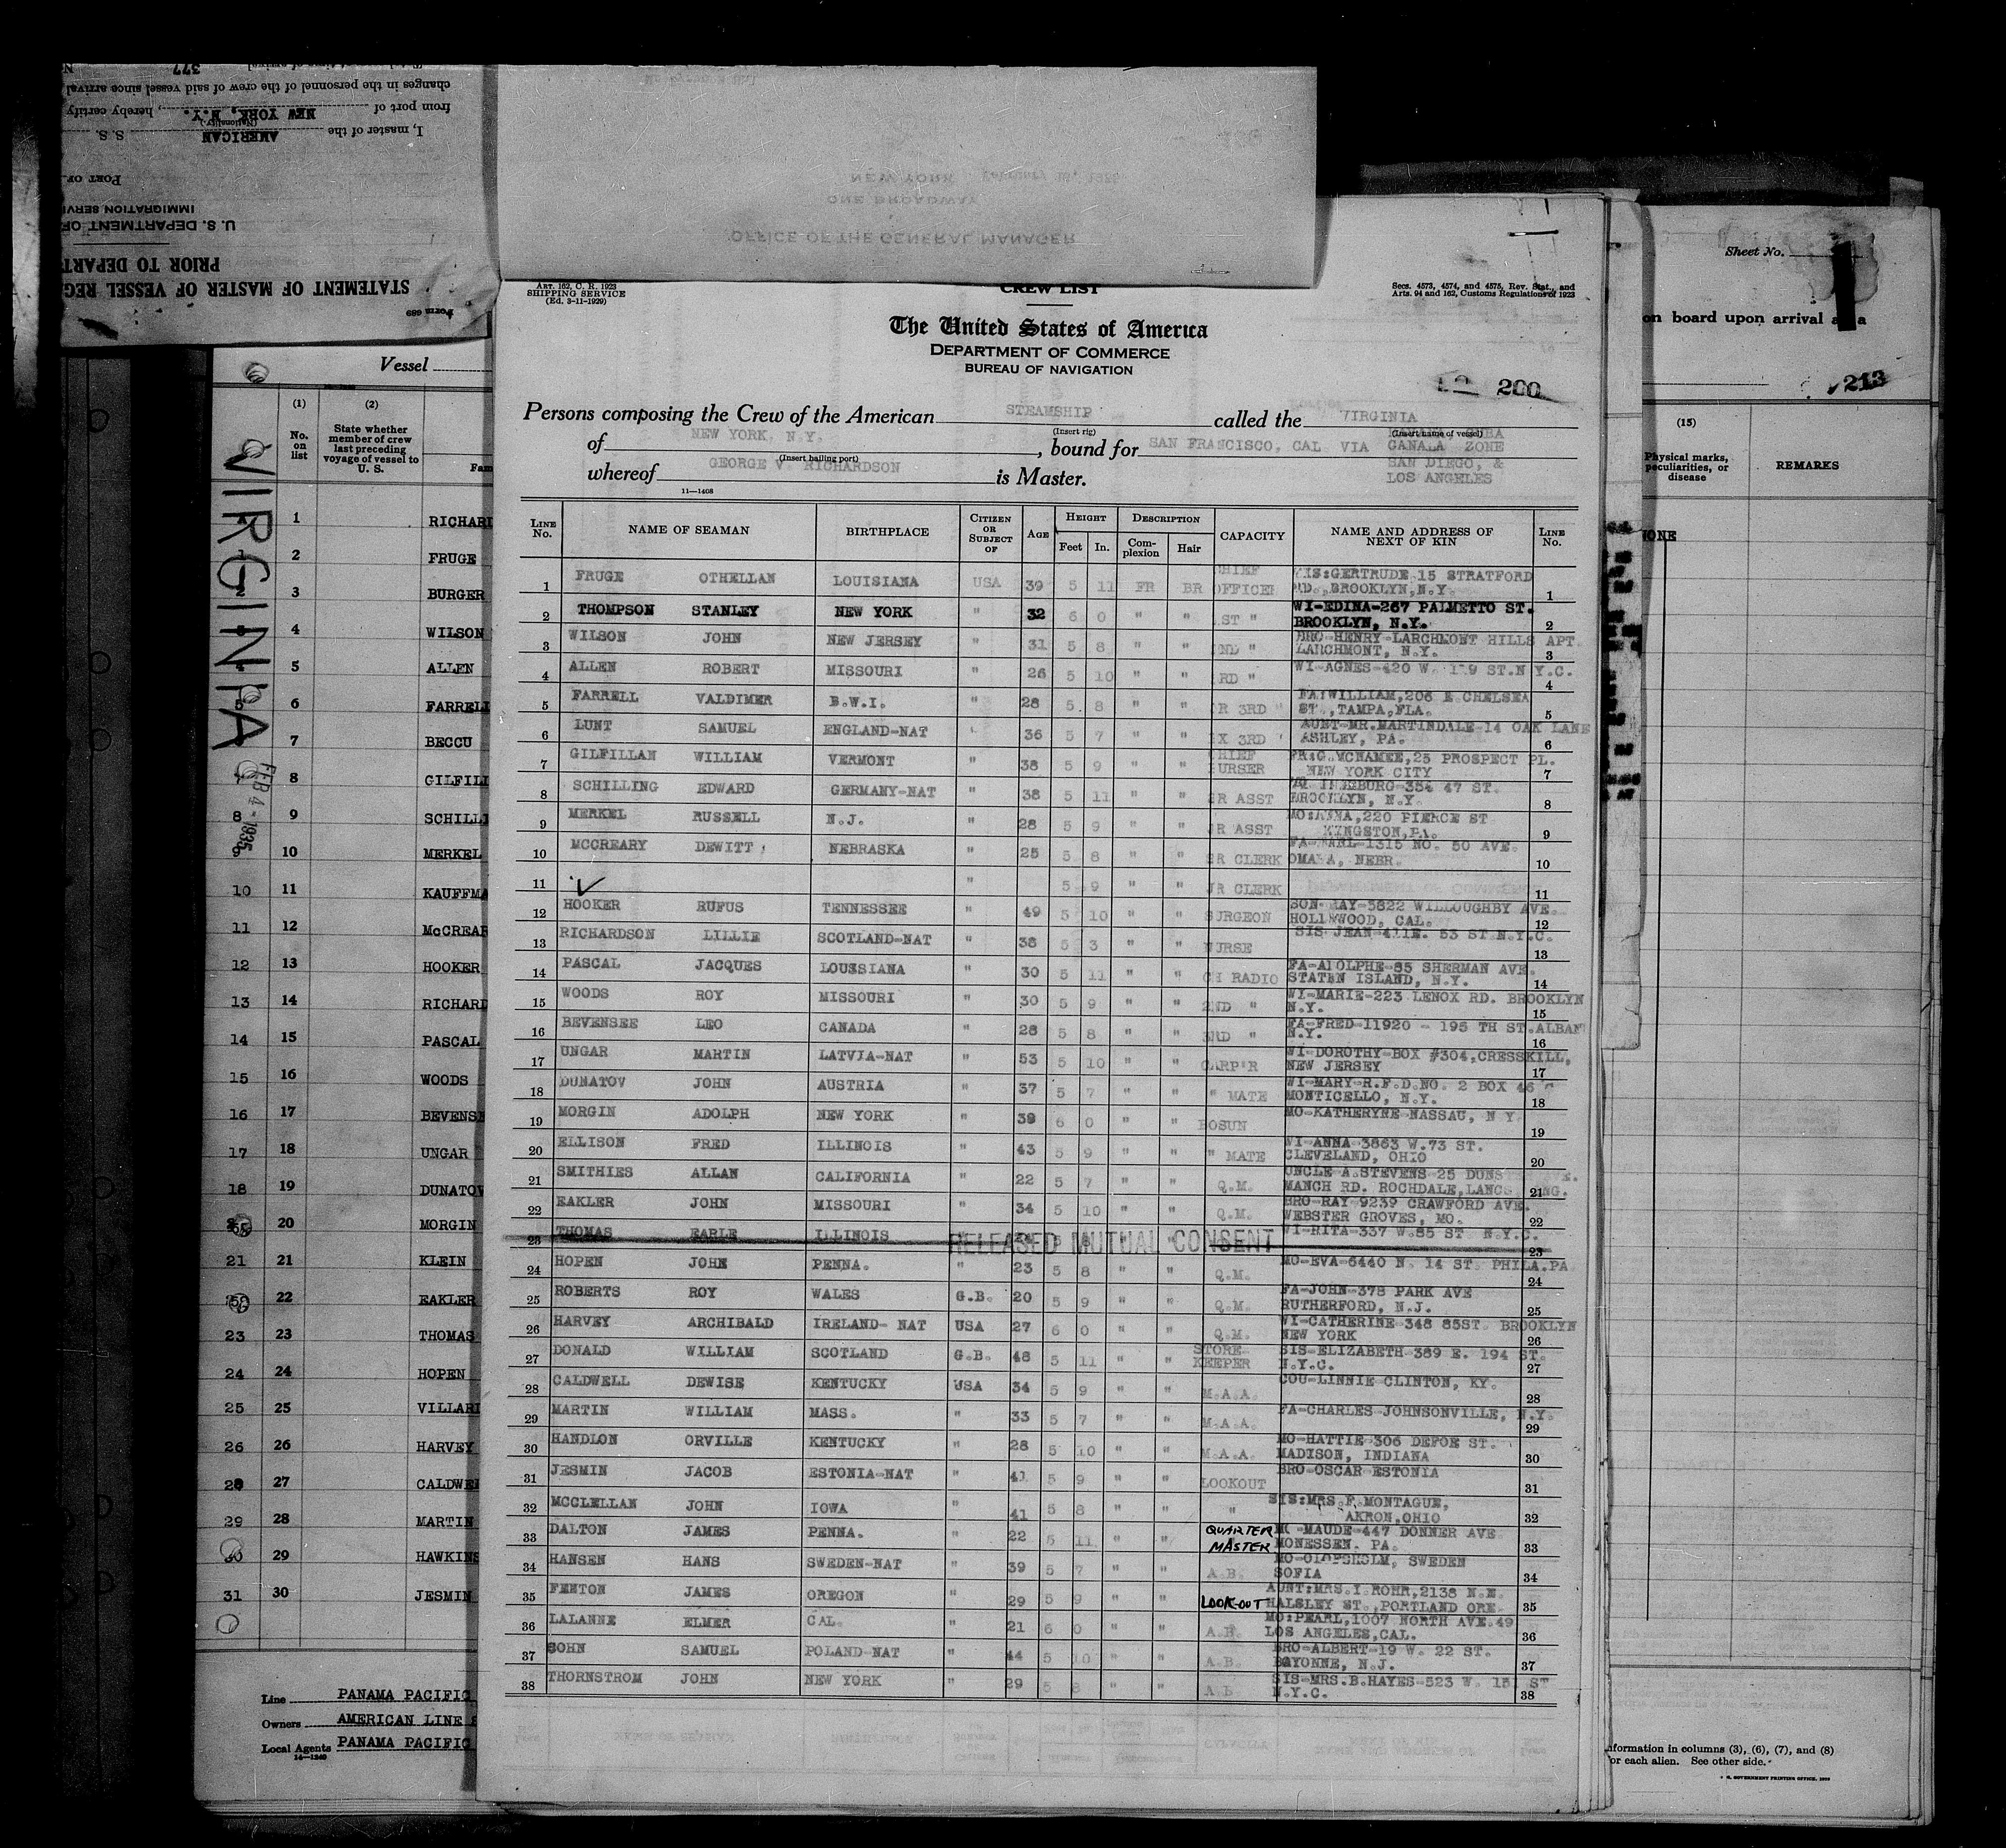 377
changes in the personnel of the crew of said vessel since arrival
from port of NEW YORK, N.Y. , hereby certify
(Nationality)
I, master of the AMERICAN S. S.
PORT OF
IMMIGRATION SERVI
U. S. DEPARTMENT OF
PRIOR TO DEPART
STATEMENT OF MASTER OF VESSEL REG
Form 689
NEW YORK
ONE BROADWAY
OFFICE OF THE GENERAL MANAGER
Sheet No.
on board upon arrival at a
213
(15)
Physical marks, peculiarities, or disease
REMARKS
NONE
Vessel
(1) (2)
No. on list
State whether member of crew last preceding voyage of vessel to U. S.
Fam
VIRGINIA
FEB 4 - 1935
1 RICHARD
2 FRUGE
3 BURGER
4 WILSON
5 ALLEN
6 FARRELL
7 BECCU
8 GILFILL
8 9 SCHILLI
9 10 MERKEL
10 11 KAUFFMA
11 12 McCREAR
12 13 HOOKER
13 14 RICHARD
14 15 PASCAL
15 16 WOODS
16 17 BEVENSE
17 18 UNGAR
18 19 DUNATOV
20 MORGIN
21 21 KLEIN
22 EAKLER
23 23 THOMAS
24 24 HOPEN
25 25 VILLARI
26 26 HARVEY
28 27 CALDWEL
29 28 MARTIN
30 29 HAWKINS
31 30 JESMIN
Line PANAMA PACIFIC
Owners AMERICAN LINE
Local Agents PANAMA PACIFIC
14—1240
ART. 162, C. R. 1923
SHIPPING SERVICE
(Ed. 3-11-1929)
CREW LIST
Secs. 4573, 4574, and 4575, Rev. Stat., and
Arts. 94 and 162, Customs Regulations of 1923
The United States of America
DEPARTMENT OF COMMERCE
BUREAU OF NAVIGATION
200
Persons composing the Crew of the American STEAMSHIP called the VIRGINIA
(Insert rig) (Insert name of vessel)
of NEW YORK, N.Y. , bound for SAN FRANCISCO, CAL VIA CANALA ZONE
(Insert hailing port) SAN DIEGO, &
whereof GEORGE V. RICHARDSON is Master. LOS ANGELES
11—1408
LINE No. NAME OF SEAMAN BIRTHPLACE CITIZEN OR SUBJECT OF AGE HEIGHT Feet In. DESCRIPTION Complexion Hair CAPACITY NAME AND ADDRESS OF NEXT OF KIN LINE No.
1 FRUGE OTHELLAN LOUISIANA USA 39 5 11 FR BR CHIEF OFFICER WIS:GERTRUDE 15 STRATFORD RD.,BROOKLYN,N.Y. 1
2 THOMPSON STANLEY NEW YORK " 32 6 0 " " 1ST " WI-EDINA-267 PALMETTO ST. BROOKLYN, N.Y. 2
3 WILSON JOHN NEW JERSEY " 31 5 8 " " 2ND " BRO-HENRY-LARCHMONT HILLS APT. LARCHMONT, N.Y. 3
4 ALLEN ROBERT MISSOURI " 26 5 10 " " 3RD " WI-AGNES-420 W. 119 ST.N Y.C. 4
5 FARRELL VALDIMER B.W.I. " 28 5 8 " " JR 3RD " FA:WILLIAM,206 E CHELSEA ST.,TAMPA,FLA. 5
6 LUNT SAMUEL ENGLAND-NAT " 36 5 7 " " EX 3RD " AUNT-MR.MARTINDALE-14 OAK LANE ASHLEY, PA. 6
7 GILFILLAN WILLIAM VERMONT " 38 5 9 " " CHIEF PURSER FR:G.MCNAMEE,25 PROSPECT PL. NEW YORK CITY 7
8 SCHILLING EDWARD GERMANY-NAT " 38 5 11 " " SR ASST 354 47 ST. BROOKLYN, N.Y. 8
9 MERKEL RUSSELL N.J. " 28 5 9 " " JR ASST MO:ANNA,220 PIERCE ST KINGSTON,PA. 9
10 MCCREARY DEWITT NEBRASKA " 25 5 8 " " SR CLERK FA-EARL-1315 NO. 50 AVE. OMAHA, NEBR. 10
11 " 5 9 " " JR CLERK 11
12 HOOKER RUFUS TENNESSEE " 49 5 10 " " SURGEON SON-RAY-5822 WILLOUGHBY AVE. HOLLYWOOD, CAL. 12
13 RICHARDSON LILLIE SCOTLAND-NAT " 38 5 3 " " NURSE SIS JEAN-411E. 53 ST.N.Y.C. 13
14 PASCAL JACQUES LOUSSIANA " 30 5 11 " " CH RADIO FA-ADOLPHE-85 SHERMAN AVE. STATEN ISLAND, N.Y. 14
15 WOODS ROY MISSOURI " 30 5 9 " " 2ND " WI-MARIE-223 LENOX RD. BROOKLYN N.Y. 15
16 BEVENSEE LEO CANADA " 28 5 8 " " 3RD " FA-FRED-11920 - 195 TH ST.ALBAN N.Y. 16
17 UNGAR MARTIN LATVIA-NAT " 53 5 10 " " CARP'R WI-DOROTHY-BOX #304,CRESSKILL, NEW JERSEY 17
18 DUNATOV JOHN AUSTRIA " 37 5 7 " " " MATE WI-MARY-R.F.D.NO. 2 BOX 46 MONTICELLO, N.Y. 18
19 MORGIN ADOLPH NEW YORK " 39 6 0 " " BOSUN MO-KATHERYNE-NASSAU, N Y. 19
20 ELLISON FRED ILLINOIS " 43 5 9 " " " MATE WI-ANNA-3863 W.73 ST. CLEVELAND, OHIO 20
21 SMITHIES ALLAN CALIFORNIA " 22 5 7 " " Q.M. UNCLE A.STEVENS-25 MANCH RD. ROCHDALE,LANCS 21
22 EAKLER JOHN MISSOURI " 34 5 10 " " Q.M. BRO-RAY-9239 CRAWFORD AVE. WEBSTER GROVES, MO. 22
23 THOMAS EARLE ILLINOIS RELEASED MUTUAL CONSENT WI-RITA-337 W.85 ST. N.Y.C. 23
24 HOPEN JOHN PENNA. " 23 5 8 " " Q.M. MO-EVA-6440 N. 14 ST. PHILA.PA 24
25 ROBERTS ROY WALES G.B. 20 5 9 " " Q.M. FA-JOHN-378 PARK AVE RUTHERFORD, N.J. 25
26 HARVEY ARCHIBALD IRELAND- NAT USA 27 6 0 " " Q.M. WI-CATHERINE-348 85ST. BROOKLYN NEW YORK 26
27 DONALD WILLIAM SCOTLAND G.B. 48 5 11 " " STORE-KEEPER SIS-ELIZABETH-389 E. 194 ST. N.Y.C. 27
28 CALDWELL DEWISE KENTUCKY USA 34 5 9 " " M.A.A. COU-LINNIE CLINTON, KY. 28
29 MARTIN WILLIAM MASS. " 33 5 7 " " M.A.A. FA-CHARLES JOHNSONVILLE, N.Y. 29
30 HANDLON ORVILLE KENTUCKY " 28 5 10 " " M.A.A. MO-HATTIE-306 DEFOE ST. MADISON, INDIANA 30
31 JESMIN JACOB ESTONIA-NAT " 41 5 9 " " LOOKOUT BRO-OSCAR-ESTONIA 31
32 MCCLELLAN JOHN IOWA " 41 5 8 " " " SIS:MRS.F.MONTAGUE, AKRON,OHIO 32
33 DALTON JAMES PENNA. " 22 5 11 " " QUARTER MASTER MO-MAUDE-447 DONNER AVE MONESSEN, PA. 33
34 HANSEN HANS SWEDEN-NAT " 39 5 7 " " A.B. SWEDEN SOFIA 34
35 FENTON JAMES OREGON " 29 5 9 " " LOOK-OUT AUNT:MRS.Y.ROHR,2138 N.E. HALSLEY ST.,PORTLAND ORE. 35
36 LALANNE ELMER CAL. " 21 6 0 " " A.B. MO:PEARL,1007 NORTH AVE.49 LOS ANGELES,CAL. 36
37 SOHN SAMUEL POLAND-NAT " 44 5 10 " " A.B. BRO-ALBERT-19 W. 22 ST. BAYONNE, N.J. 37
38 THORNSTROM JOHN NEW YORK " 29 5 8 " " A B SIS-MRS.B.HAYES-523 W. 151 ST N.Y.C. 38
nformation in columns (3), (6), (7), and (8)
or each alien. See other side.
U. S. GOVERNMENT PRINTING OFFICE